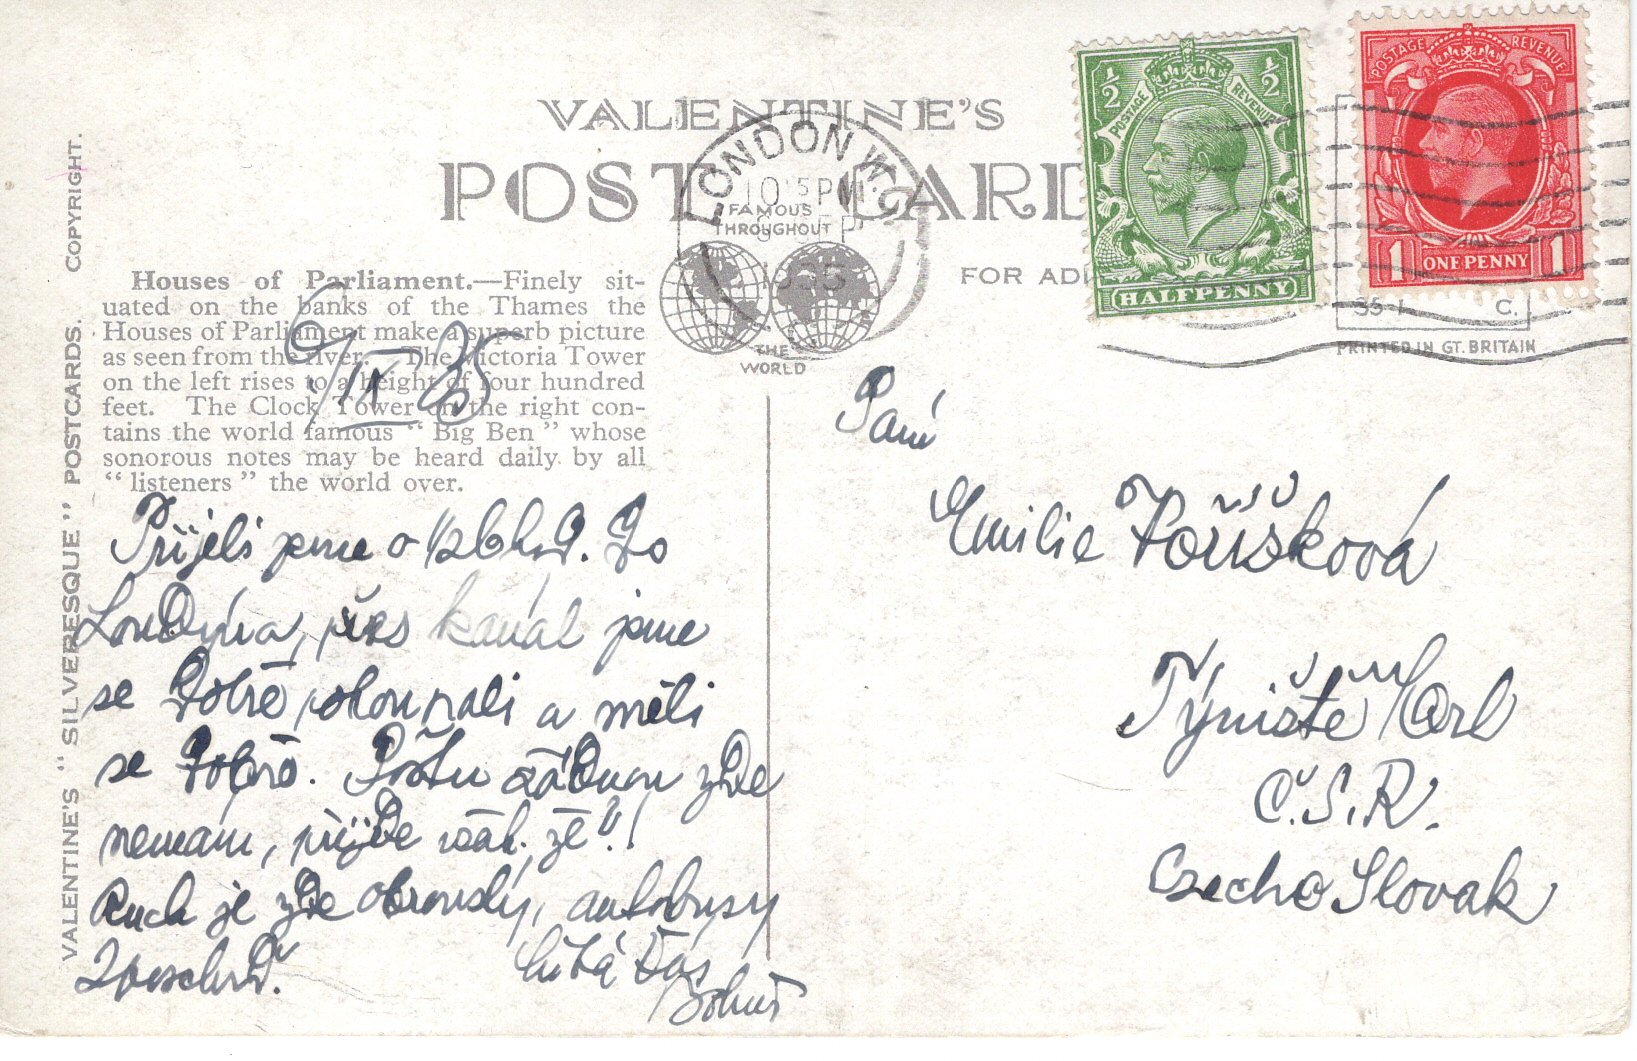 VALENTINE'S
POST CARD
FOR ADD
LONDON W.C.
10 15 PM
5 SEP
1935
FAMOUS
THROUGHOUT
THE
WORLD
½ ½
POSTAGE REVENUE
HALFPENNY
POSTAGE REVENUE
1 ONE PENNY 1
35-1 C.
PRINTED IN GT. BRITAIN
VALENTINE'S "SILVERESQUE" POSTCARDS. COPYRIGHT.
Houses of Parliament.—Finely sit-
uated on the banks of the Thames the
Houses of Parliament make a superb picture
as seen from the river. The Victoria Tower
on the left rises to a height of four hundred
feet. The Clock Tower on the right con-
tains the world famous "Big Ben" whose
sonorous notes may be heard daily by all
"listeners" the world over.
/IX 35
Přijeli jsme o ½6 Do
Londýna, přes kanál jsme
se dobře pohoupali a měli
se dobře. Poštu žádnou zde
nemám, přijde však, že"!
Ruch je zde obrovský, autobusy
všechno.
líbá Vás
Bohuš
Paní
Emilie Voříšková
Týniště / Orl
Č.S.R.
Czecho Slovak